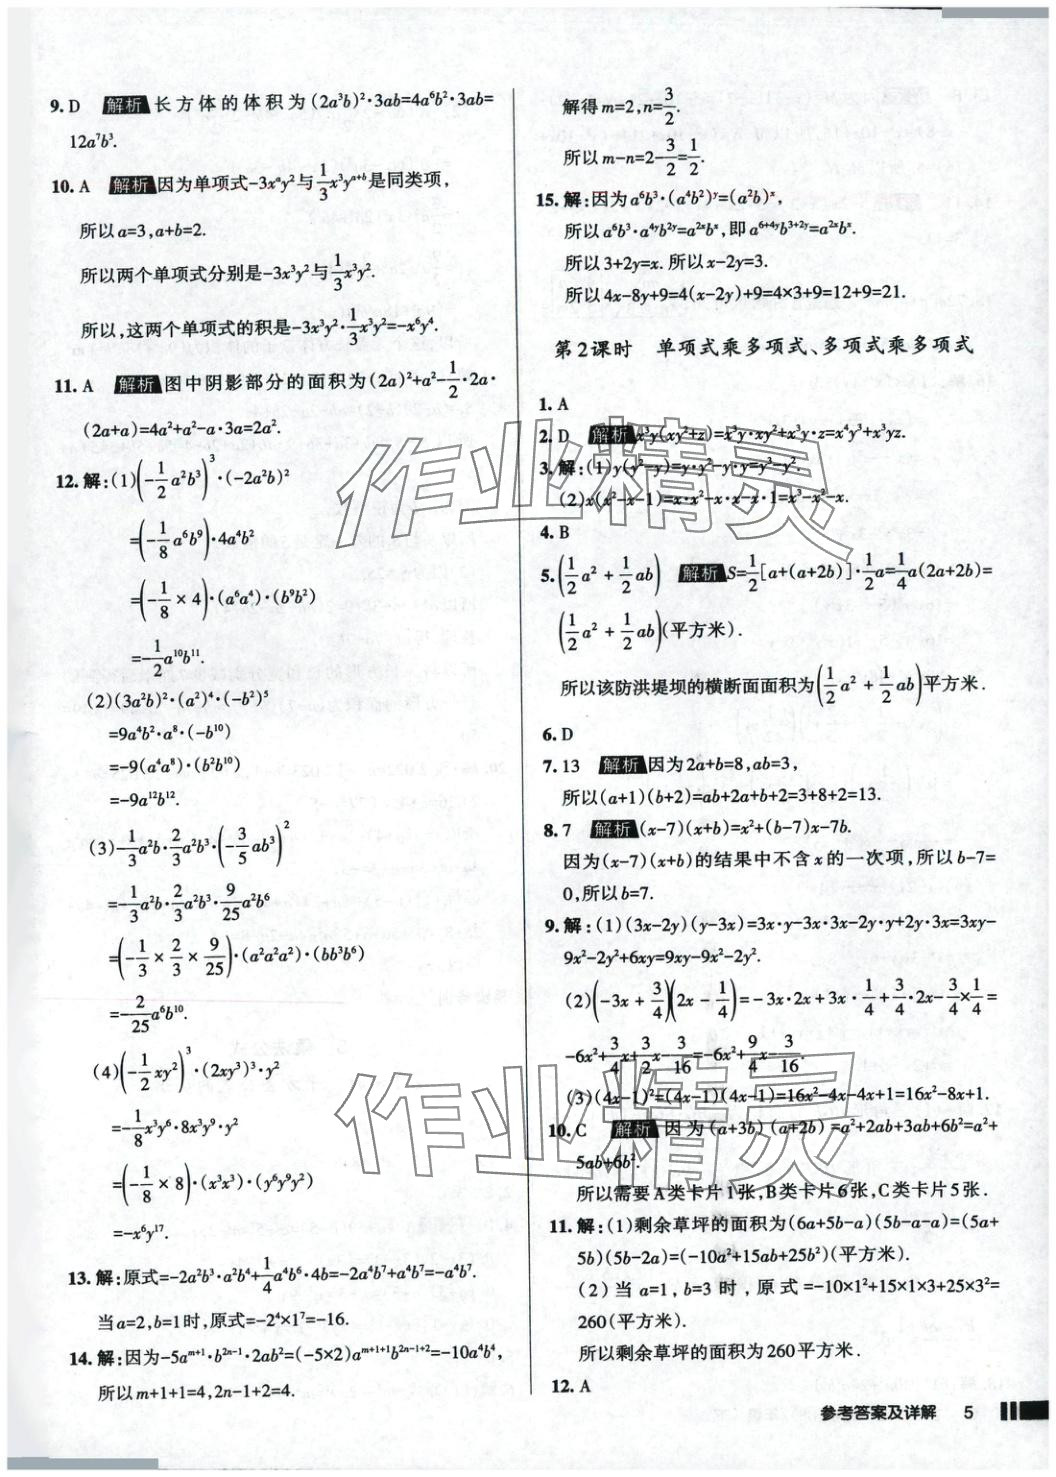 9. D 解析 长方体的体积为(2a³b)²·3ab=4a⁶b²·3ab=
12a⁷b³.
10. A 解析 因为单项式-3xᵃy²与1/3x³yᵃ⁺ᵇ是同类项,
所以a=3,a+b=2.
所以两个单项式分别是-3x³y²与1/3x³y².
所以,这两个单项式的积是-3x³y²·1/3x³y²=-x⁶y⁴.
11. A 解析 图中阴影部分的面积为(2a)²+a²-1/2·2a·
(2a+a)=4a²+a²-a·3a=2a².
12. 解:(1)(-1/2a²b³)³·(-2a²b)²
=(-1/8a⁶b⁹)·4a⁴b²
=(-1/8×4)·(a⁶a⁴)·(b⁹b²)
=-1/2a¹⁰b¹¹.
(2)(3a²b)²·(a²)⁴·(-b²)⁵
=9a⁴b²·a⁸·(-b¹⁰)
=-9(a⁴a⁸)·(b²b¹⁰)
=-9a¹²b¹².
(3)-1/3a²b·2/3a²b³·(-3/5ab³)²
=-1/3a²b·2/3a²b³·9/25a²b⁶
=(-1/3×2/3×9/25)·(a²a²a²)·(bb³b⁶)
=-2/25a⁶b¹⁰.
(4)(-1/2xy²)³·(2xy³)³·y²
=-1/8x³y⁶·8x³y⁹·y²
=(-1/8×8)·(x³x³)·(y⁶y⁹y²)
=-x⁶y¹⁷.
13. 解:原式=-2a²b³·a²b⁴+1/4a⁴b⁶·4b=-2a⁴b⁷+a⁴b⁷=-a⁴b⁷.
当a=2,b=1时,原式=-2⁴×1⁷=-16.
14. 解:因为-5aᵐ⁺¹·b²ⁿ⁻¹·2ab²=(-5×2)aᵐ⁺¹⁺¹b²ⁿ⁻¹⁺²=-10a⁴b⁴,
所以m+1+1=4,2n-1+2=4.
解得m=2,n=3/2.
所以m-n=2-3/2=1/2.
15. 解:因为a⁶b³·(a⁴b²)ʸ=(a²b)ˣ,
所以a⁶b³·a⁴ʸb²ʸ=a²ˣbˣ,即a⁶⁺⁴ʸb³⁺²ʸ=a²ˣbˣ.
所以3+2y=x.所以x-2y=3.
所以4x-8y+9=4(x-2y)+9=4×3+9=12+9=21.
第2课时 单项式乘多项式、多项式乘多项式
1. A
2. D 解析 x³y(xy²+z)=x³y·xy²+x³y·z=x⁴y³+x³yz.
3. 解:(1)y(y²-y)=y·y²-y·y=y³-y².
(2)x(x²-x-1)=x·x²-x·x-x·1=x³-x²-x.
4. B
5. (1/2a²+1/2ab) 解析 S=1/2[a+(a+2b)]·1/2a=1/4a(2a+2b)=
(1/2a²+1/2ab)(平方米).
所以该防洪堤坝的横断面面积为(1/2a²+1/2ab)平方米.
6. D
7. 13 解析 因为2a+b=8,ab=3,
所以(a+1)(b+2)=ab+2a+b+2=3+8+2=13.
8. 7 解析 (x-7)(x+b)=x²+(b-7)x-7b.
因为(x-7)(x+b)的结果中不含x的一次项,所以b-7=
0,所以b=7.
9. 解:(1)(3x-2y)(y-3x)=3x·y-3x·3x-2y·y+2y·3x=3xy-
9x²-2y²+6xy=9xy-9x²-2y².
(2)(-3x+3/4)(2x-1/4)=-3x·2x+3x·1/4+3/4·2x-3/4×1/4=
-6x²+3/4x+3/2x-3/16=-6x²+9/4x-3/16.
(3)(4x-1)²=(4x-1)(4x-1)=16x²-4x-4x+1=16x²-8x+1.
10. C 解析 因为(a+3b)(a+2b)=a²+2ab+3ab+6b²=a²+
5ab+6b².
所以需要A类卡片1张,B类卡片6张,C类卡片5张.
11. 解:(1)剩余草坪的面积为(6a+5b-a)(5b-a-a)=(5a+
5b)(5b-2a)=(-10a²+15ab+25b²)(平方米).
(2)当a=1,b=3时,原式=-10×1²+15×1×3+25×3²=
260(平方米).
所以剩余草坪的面积为260平方米.
12. A
参考答案及详解 5
作业精灵
作业精灵